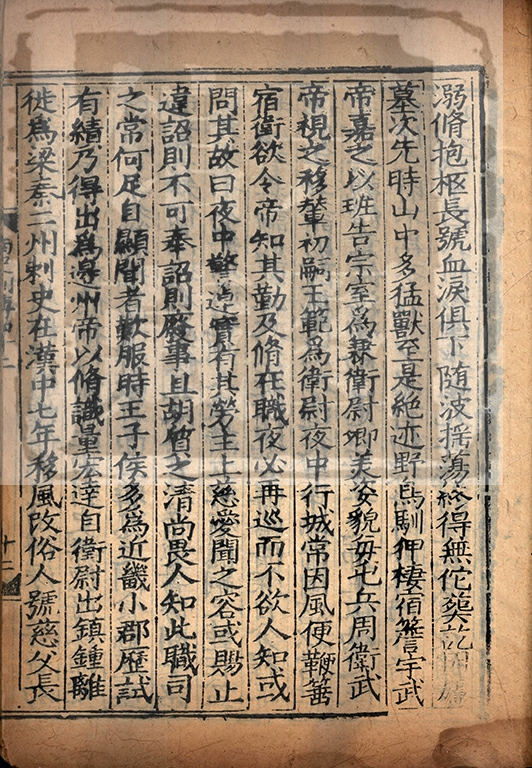 溺脩抱柩長號血淚俱下隨波揺蕩終得無佗葬訖因廬
墓次先時山中多猛獸至是絶迹野鳥馴狎棲宿簷宇武
帝嘉之以班告宗室爲兼衛尉卿美姿貌每屯兵周衛武
帝視之移輦初嗣王範爲衛尉夜中行城常因風便鞭箠
宿衛欲令帝知其勤及脩在職夜必再巡而不欲人知或
問其故曰夜中警逴實有其勞主上慈愛聞之容或賜止
違詔則不可奉詔則廢事且胡質之清尚畏人知此職司
之常何足自顯聞者歎服時王子侯多爲近畿小郡歷試
有績乃得出爲邊州帝以脩識量宏達自衛尉出鎮鍾離
徙爲梁秦二州刺史在漢中七年移風改俗人號慈父長
十二